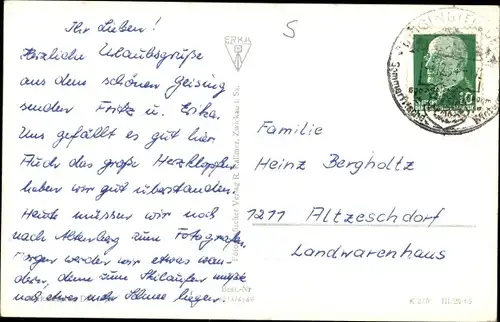 Ihr Lieben!
Herzliche Urlaubsgrüße
aus dem schönen Geising
senden Fritz u. Erika.
Uns gefällt es gut hier.
Auch das große Herzklopfen
haben wir gut überstanden.
Heute müssen wir noch
nach Altenberg zum Fotografen.
Morgen werden wir etwas wan-
dern, denn zum Skilaufen müßte
noch etwas mehr Schnee liegen.
ERKA
S
GEISING
Sommerfrische
10
Familie
Heinz Bergholtz
1211 Altzeschdorf
Landwarenhaus
Verlag R.
Best.-Nr.